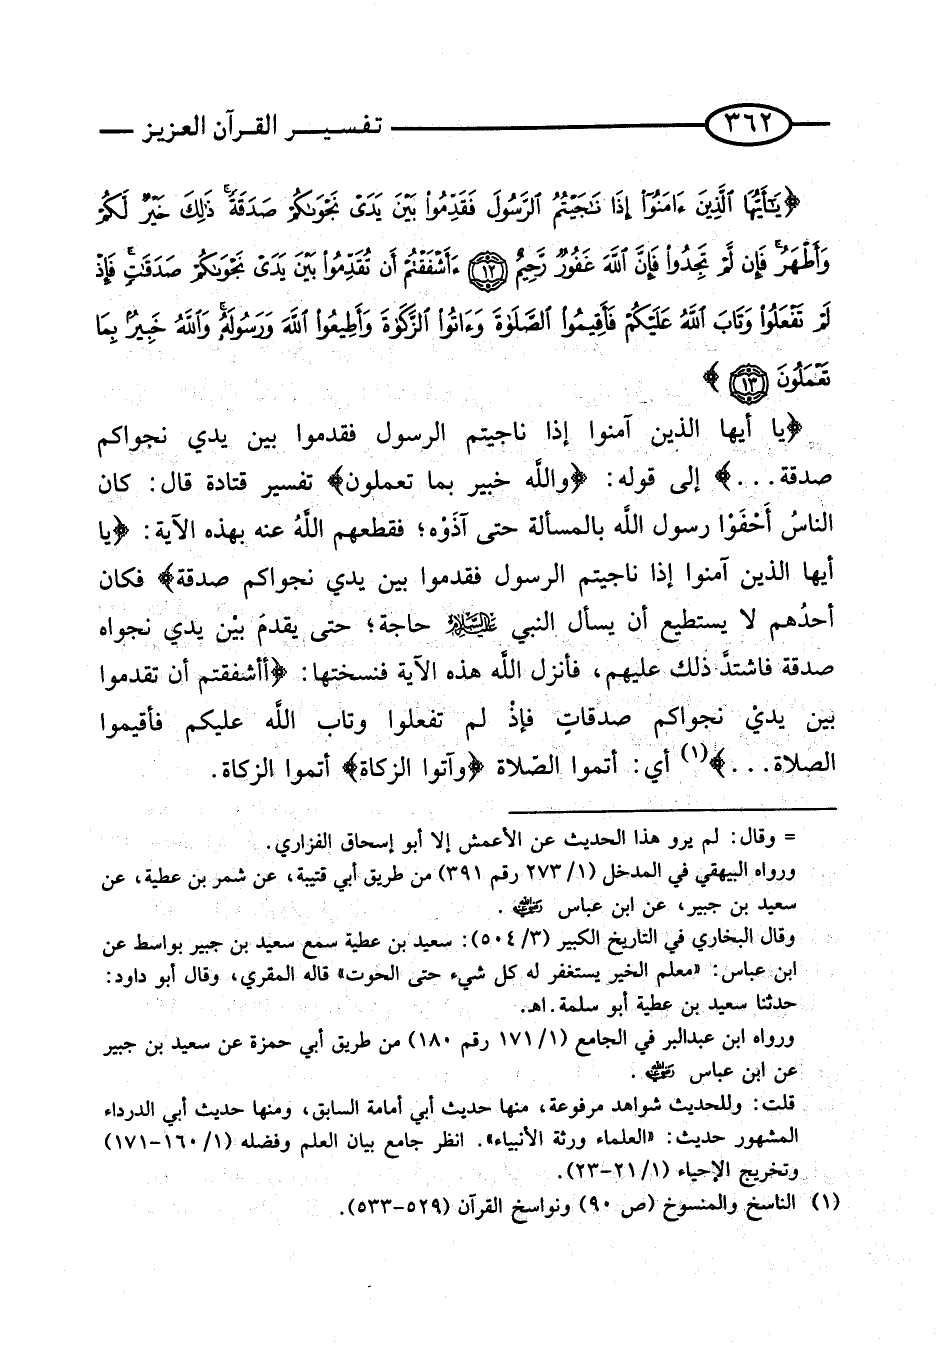 ٣٦٢ تفسير القرآن العزيز
﴿يَٰٓأَيُّهَا ٱلَّذِينَ ءَامَنُوٓا۟ إِذَا نَٰجَيْتُمُ ٱلرَّسُولَ فَقَدِّمُوا۟ بَيْنَ يَدَىْ نَجْوَىٰكُمْ صَدَقَةً ۚ ذَٰلِكَ خَيْرٌ لَّكُمْ
وَأَطْهَرُ ۚ فَإِن لَّمْ تَجِدُوا۟ فَإِنَّ ٱللَّهَ غَفُورٌ رَّحِيمٌ ١٢ ءَأَشْفَقْتُمْ أَن تُقَدِّمُوا۟ بَيْنَ يَدَىْ نَجْوَىٰكُمْ صَدَقَٰتٍ ۚ فَإِذْ
لَمْ تَفْعَلُوا۟ وَتَابَ ٱللَّهُ عَلَيْكُمْ فَأَقِيمُوا۟ ٱلصَّلَوٰةَ وَءَاتُوا۟ ٱلزَّكَوٰةَ وَأَطِيعُوا۟ ٱللَّهَ وَرَسُولَهُۥ ۚ وَٱللَّهُ خَبِيرٌۢ بِمَا
تَعْمَلُونَ ١٣ ﴾
﴿يا أيها الذين آمنوا إذا ناجيتم الرسول فقدموا بين يدي نجواكم
صدقة...﴾ إلى قوله: ﴿واللَّه خبير بما تعملون﴾ تفسير قتادة قال: كان
الناسُ أَحْفَوْا رسول اللَّه بالمسألة حتى آذَوْه؛ فقطعهم اللَّهُ عنه بهذه الآية: ﴿يا
أيها الذين آمنوا إذا ناجيتم الرسول فقدموا بين يدي نجواكم صدقة﴾ فكان
أحدُهم لا يستطيع أن يسأل النبي عليه السلام حاجة؛ حتى يقدمَ بيْن يدي نجواه
صدقة فاشتدَّ ذلك عليهم، فأنزل اللَّه هذه الآية فنسختها: ﴿أأشفقتم أن تقدموا
بين يديْ نجواكم صدقاتٍ فإذْ لم تفعلوا وتاب اللَّه عليكم فأقيموا
الصلاة...﴾(١) أي: أتموا الصّلاة ﴿وآتوا الزكاة﴾ أتموا الزكاة.
= وقال: لم يرو هذا الحديث عن الأعمش إلا أبو إسحاق الفزاري.
ورواه البيهقي في المدخل (١/ ٢٧٣ رقم ٣٩١) من طريق أبي قتيبة، عن شمر بن عطية، عن
سعيد بن جبير، عن ابن عباس رضي الله عنه .
وقال البخاري في التاريخ الكبير (٣/ ٥٠٤): سعيد بن عطية سمع سعيد بن جبير بواسط عن
ابن عباس: «معلم الخير يستغفر له كل شيء حتى الحوت» قاله المقري، وقال أبو داود:
حدثنا سعيد بن عطية أبو سلمة.اهـ.
ورواه ابن عبدالبر في الجامع (١/ ١٧١ رقم ١٨٠) من طريق أبي حمزة عن سعيد بن جبير
عن ابن عباس رضي الله عنه .
قلت: وللحديث شواهد مرفوعة، منها حديث أبي أمامة السابق، ومنها حديث أبي الدرداء
المشهور حديث: «العلماء ورثة الأنبياء». انظر جامع بيان العلم وفضله (١/ ١٦٠-١٧١)
وتخريج الإحياء (١/ ٢١-٢٣).
(١) الناسخ والمنسوخ (ص ٩٠) ونواسخ القرآن (٥٢٩-٥٣٣).